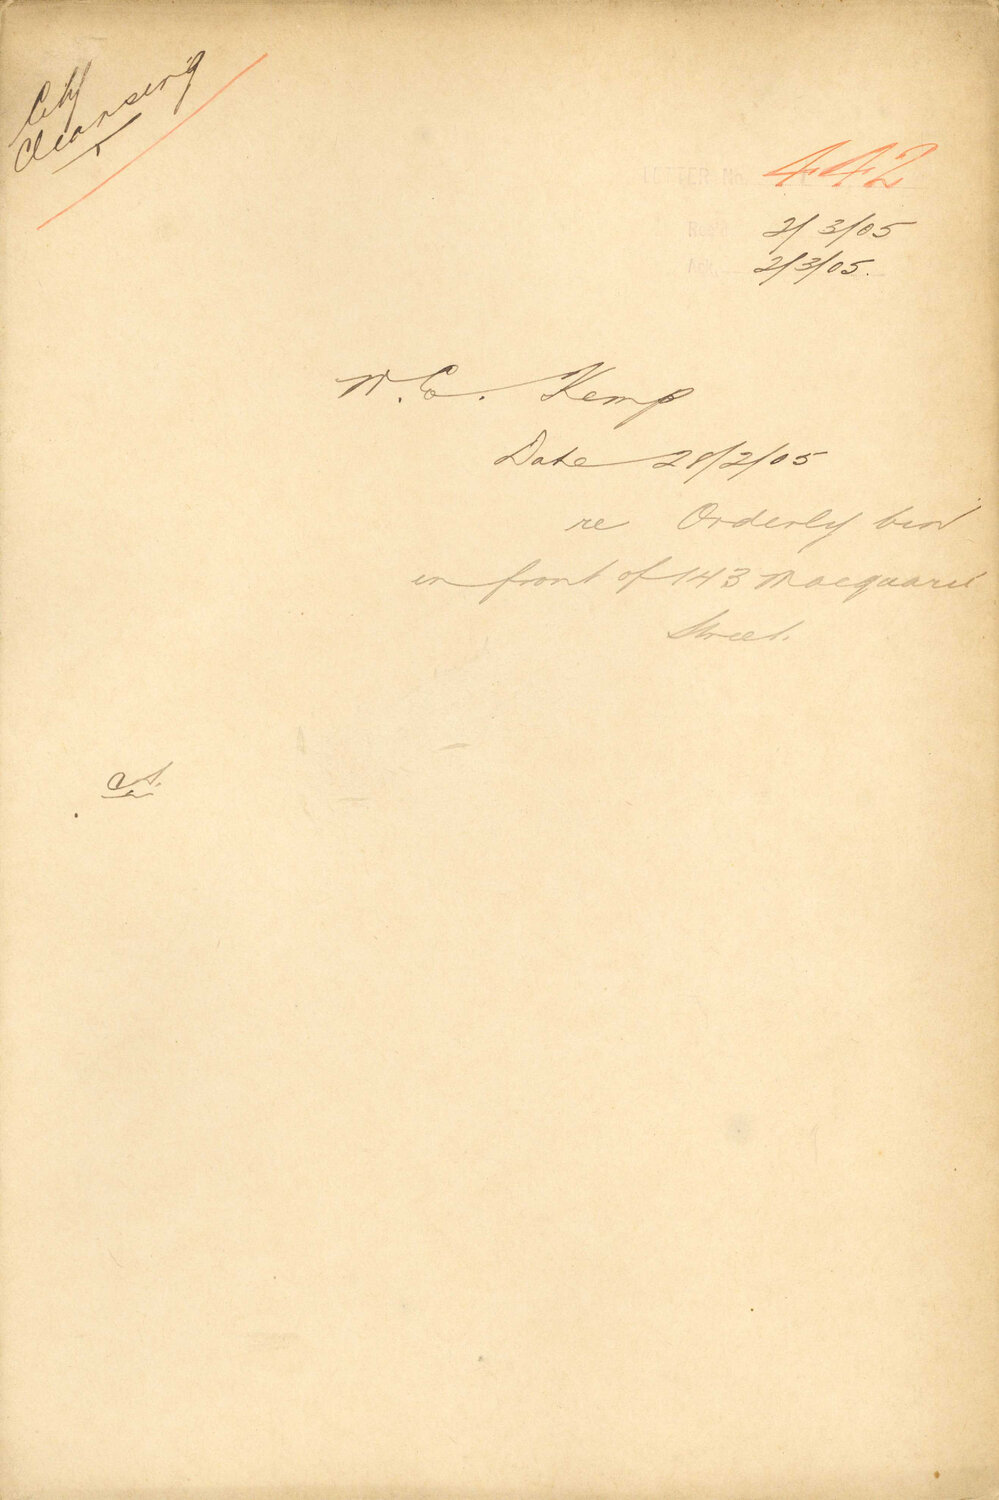 City
Cleansing
LETTER No. 442
Recd 2/3/05
Ack. 2/3/05.
W. E. Kemp
Date 28/2/05
re Orderly bin
in front of 143 Macquarie
Street.